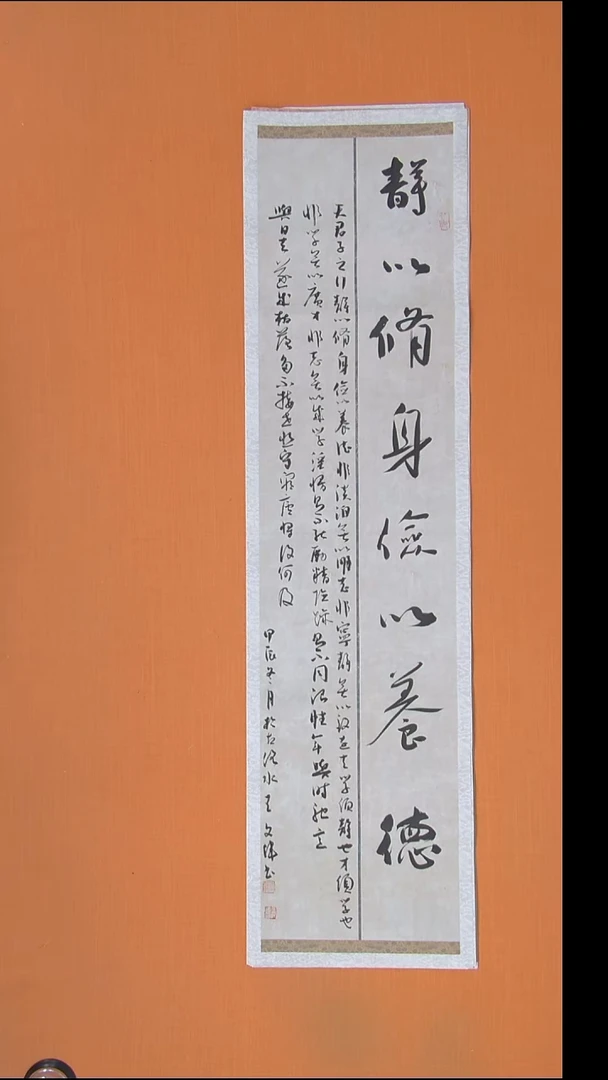 靜以脩身儉以養德
夫君子之行靜以脩身儉以養德非淡泊無以明志非寧靜無以致遠夫學須靜也才須學也
非學無以廣才非志無以成學淫慢則不能勵精險躁則不能治性年與時馳意
與日去遂成枯落多不接世悲守窮廬將復何及
甲辰冬月於古沱水 文 書